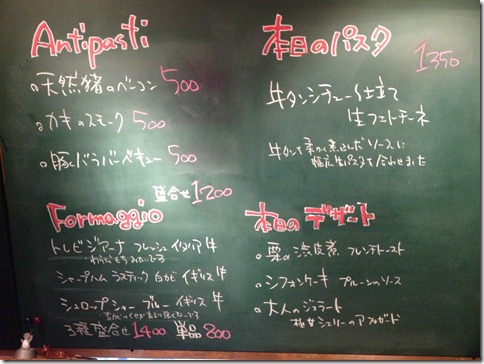 Antipasti
天然猪のベーコン 500
カキのスモーク 500
豚バラバーベキュー 500
盛合せ 1200
Formaggio
トレビジアーナ フレッシュ イタリア 牛
シャープハム ラスティック 白カビ イギリス 牛
シュロップシャーブルー イギリス 牛
3種盛合せ 1400 単品 800
本日のパスタ
1350
牛タンシチュー仕立て
生フェトチーネ
牛タンを柔かく煮込んだソースに
幅広生パスタを合わせました
本日のデザート
栗の渋皮煮 フレンチトースト
シフォンケーキ プルーンのソース
大人のジェラート
極甘シェリーのアフォガード